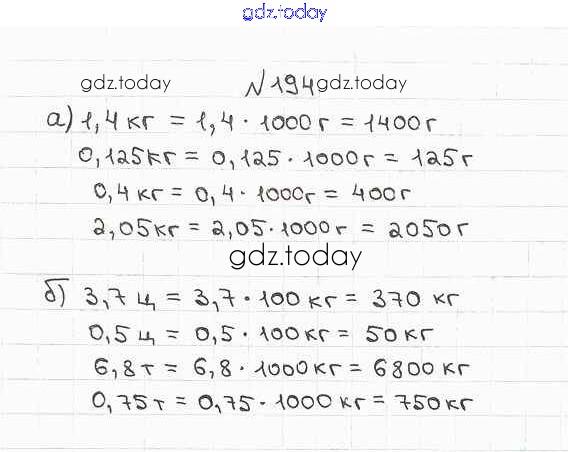 gdz.today
gdz.today №194 gdz.today
а) 1,4 кг = 1,4 · 1000 г = 1400 г
0,125 кг = 0,125 · 1000 г = 125 г
0,4 кг = 0,4 · 1000 г = 400 г
2,05 кг = 2,05 · 1000 г = 2050 г
gdz.today
б) 3,7 ц = 3,7 · 100 кг = 370 кг
0,5 ц = 0,5 · 100 кг = 50 кг
6,8 т = 6,8 · 1000 кг = 6800 кг
0,75 т = 0,75 · 1000 кг = 750 кг